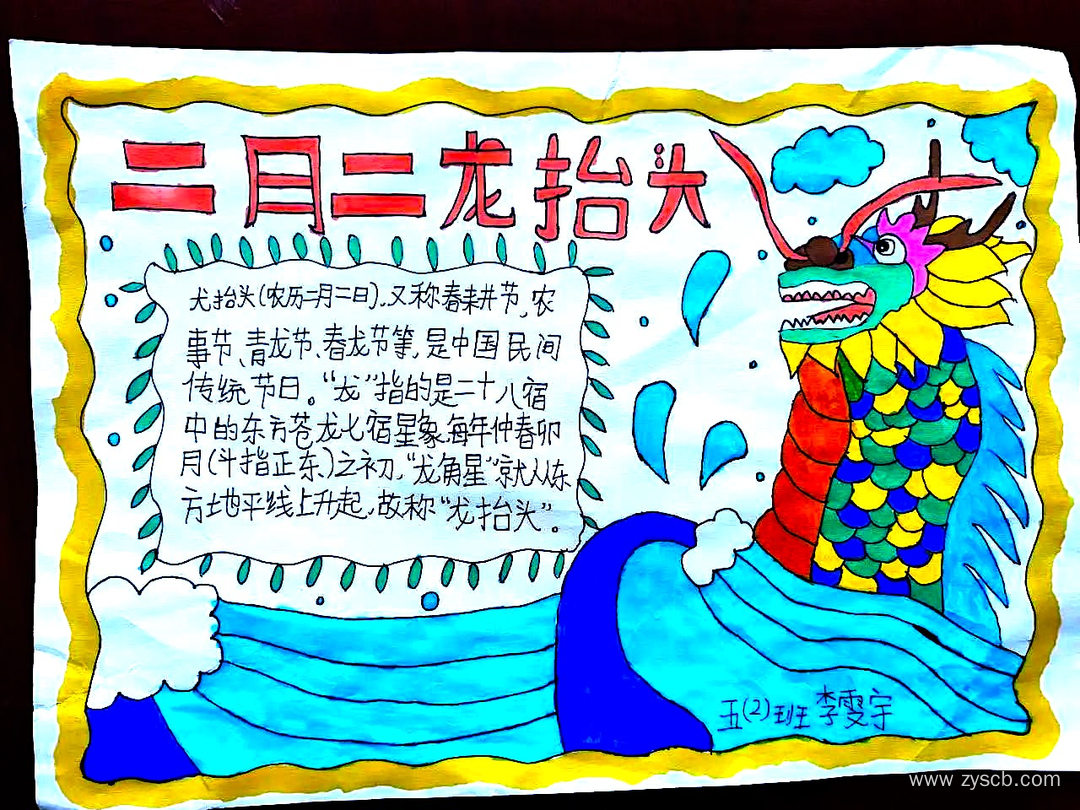 二月二龙抬头
尤抬头(农历二月二日).又称春耕节,农
事节、青龙节、春龙节等,是中国民间
传统节日。“龙”指的是二十八宿
中的东方苍龙七宿星象,每年仲春卯
月(斗指正东)之初,“龙角星”就从东
方地平线上升起,故称“龙抬头”。
五(2)班 李雯宇
www.zyscb.com